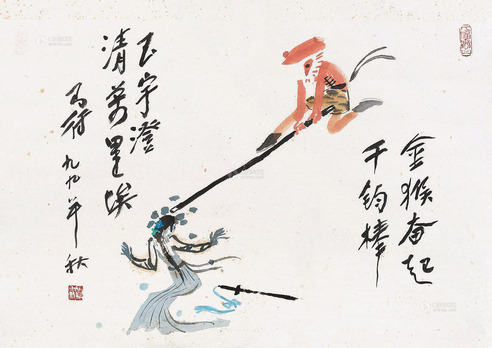 金猴奋起
千钧棒
玉宇澄
清萬里埃
马得 九九年秋